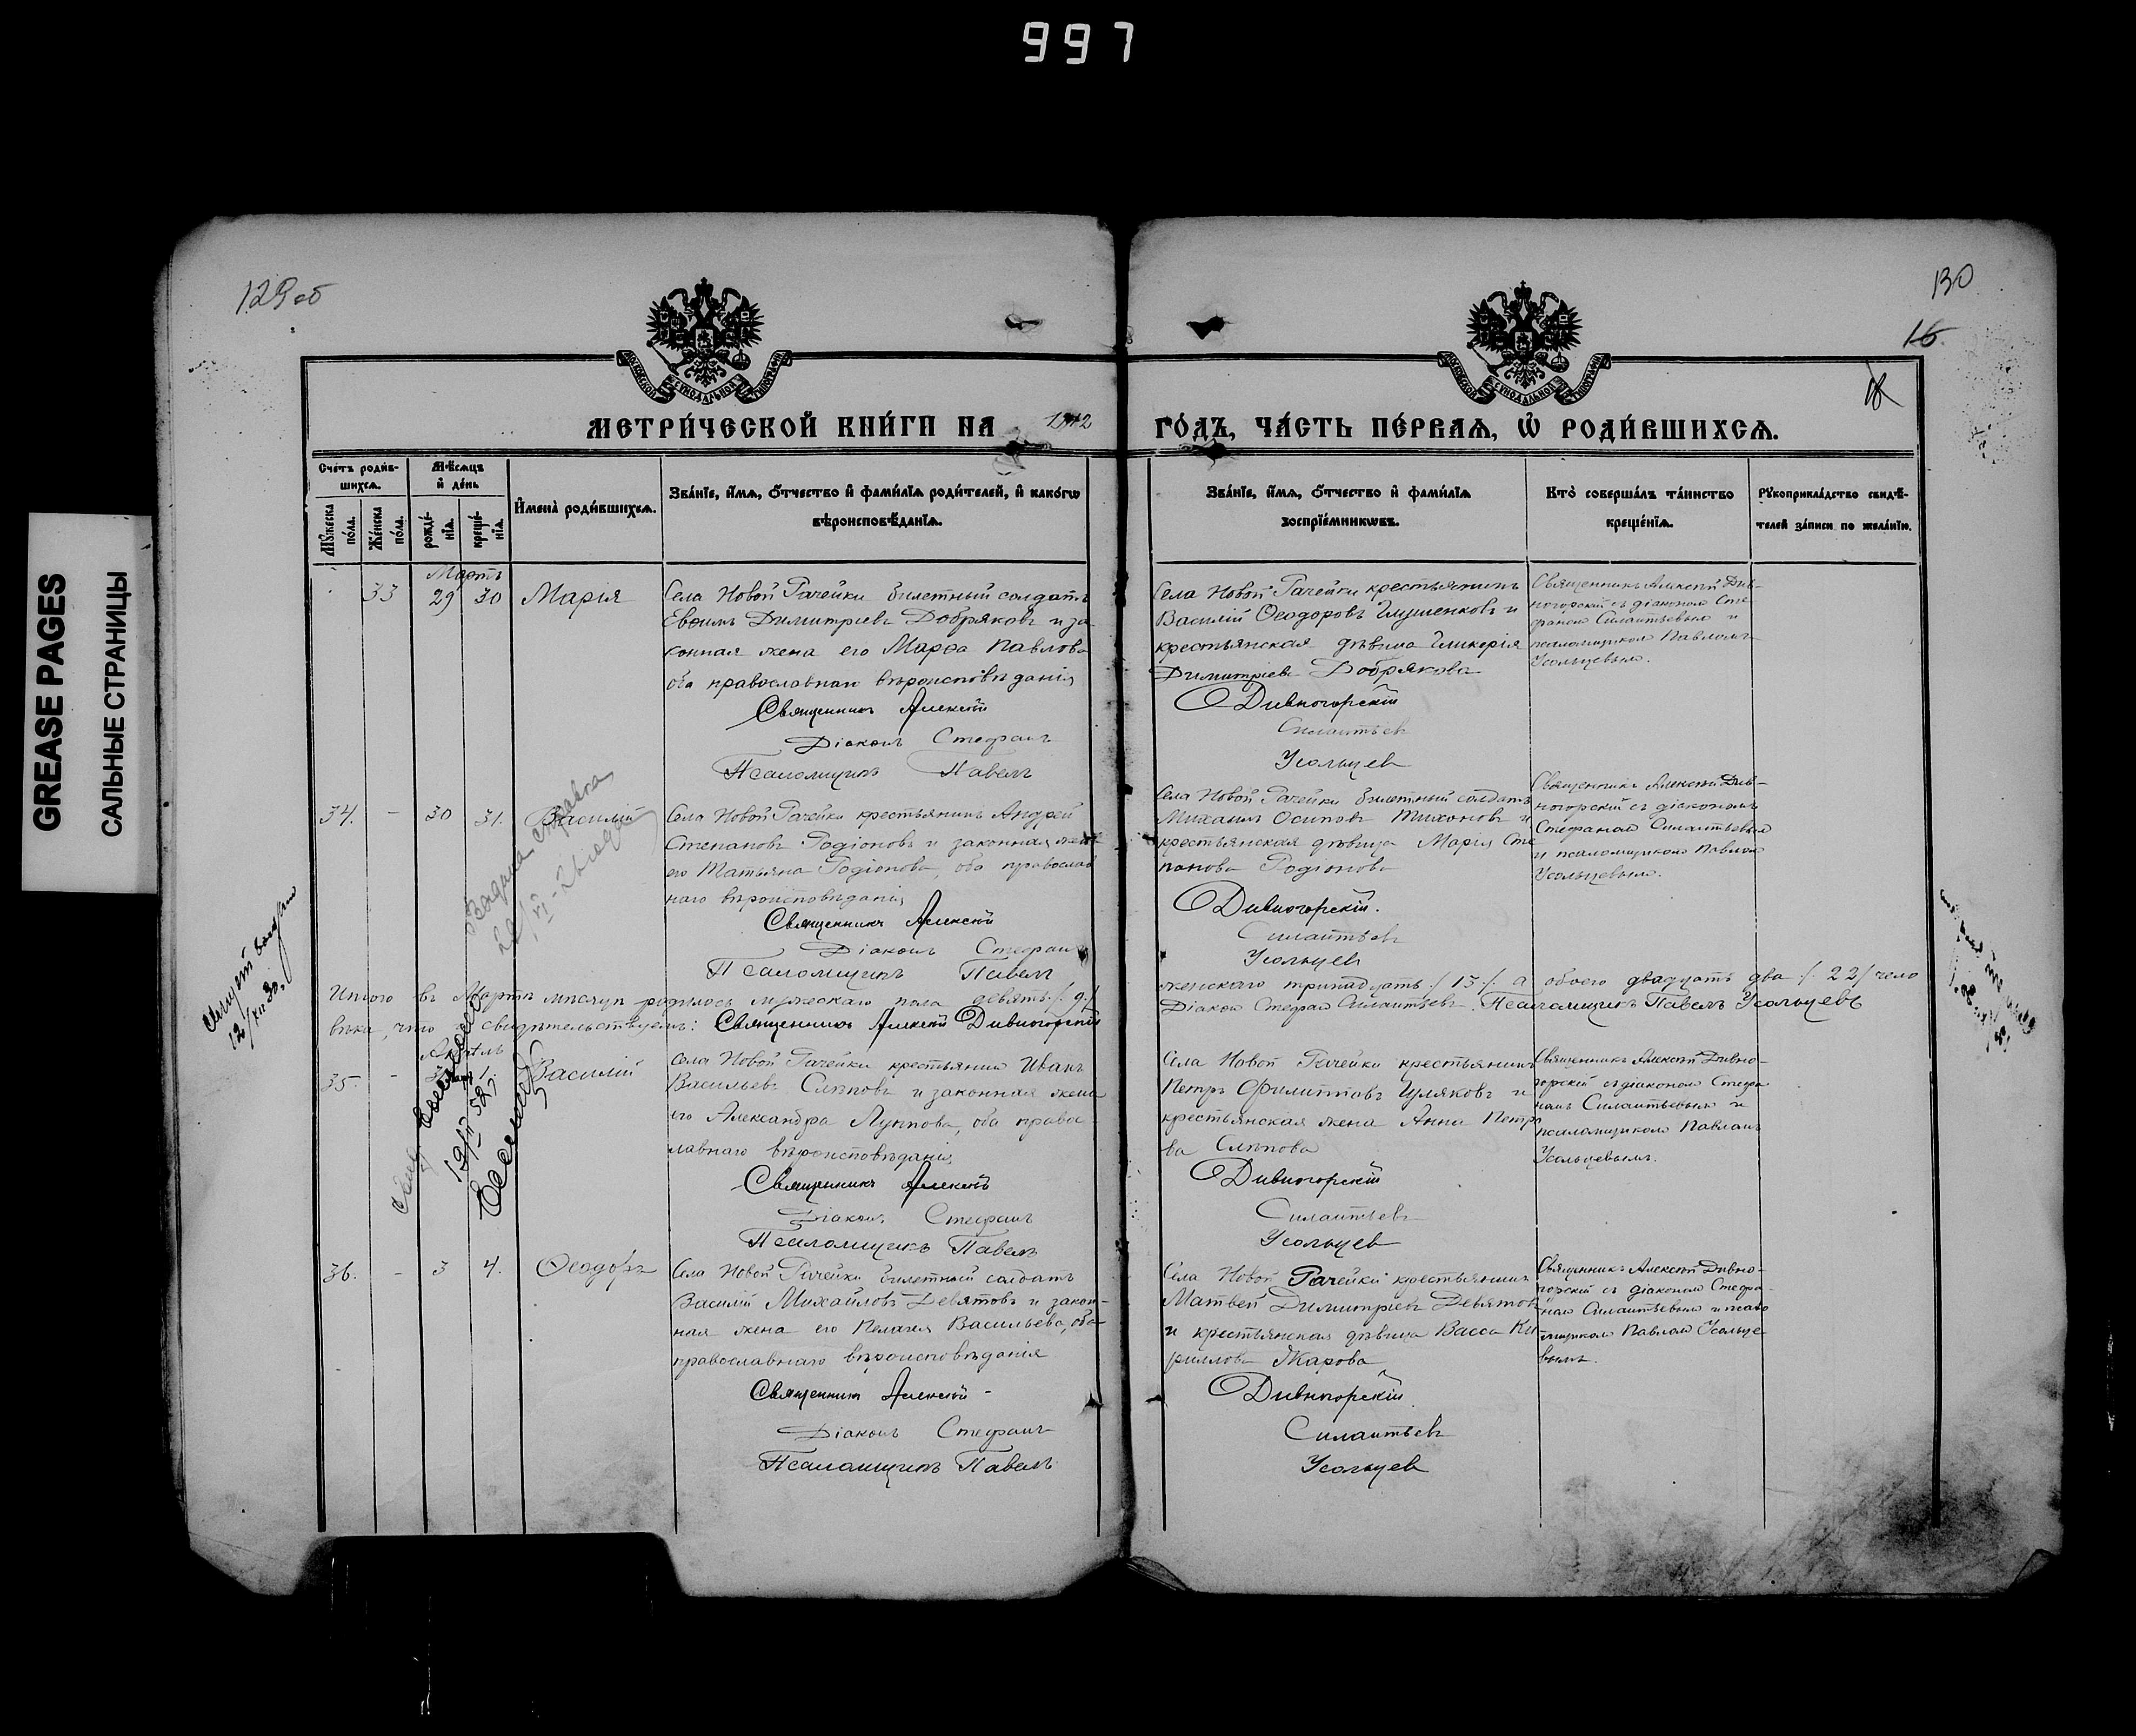 997
GREASE PAGES
САЛЬНЫЕ СТРАНИЦЫ
129 об
130
16
МЕТРИ́ЧЕСКОЙ КНИ́ГИ НА 1912 ГО́ДЪ, ЧА́СТЬ ПЕ́РВАѦ, Ѡ҆ РОДИ́ВШИХСѦ.
Сче́тъ роди́в-
шихсѧ.
Мѣ́сѧцъ
и҆ де́нь
Мꙋ́жеска
по́ла.
Же́нска
по́ла.
рожде́-
нїѧ.
креще́-
нїѧ.
И҆мена̀ роди́вшихсѧ.
Зва́нїе, и҆́мѧ, ѻ҆́тчество и҆ фами́лїѧ роди́телей, и҆ како́гѡ
вѣроисповѣ́данїѧ.
Зва́нїе, и҆́мѧ, ѻ҆́тчество и҆ фами́лїѧ
воспрїе́мникѡвъ.
Кто̀ соверша́лъ та́инство
креще́нїѧ.
Рꙋкоприкла́дство свидѣ́-
телей за́писи по жела́нїю.
Мартъ
33 29 30 Марія
Села Новой Рачейки билетный солдатъ
Евѳимъ Димитріевъ Добряковъ и за
конная жена его Марѳа Павлова
оба православнаго вѣроисповѣданія
Священникъ Алексій
Діаконъ Стефанъ
Псаломщикъ Павелъ
Села Новой Рачейки крестьянинъ
Василій Ѳеодоровъ Глушенковъ и
крестьянская дѣвица Гликерія
Димитріева Добрякова
Дивногорскій
Силантьевъ
Усольцев
Священникъ Алексій Див-
ногорскій съ діакономъ Сте
фаномъ Силантьевымъ и
псаломщикомъ Павломъ
Усольцевымъ.
34. - 30 31. Василій
Села Новой Рачейки крестьянинъ Андрей
Степановъ Родіоновъ и законная жена
его Татьяна Родіонова, оба православ
наго вѣроисповѣданія
Священникъ Алексій
Діаконъ Стефанъ
Псаломщикъ Павелъ
Села Новой Рачейки билетный солдатъ
Михаилъ Осиповъ Тихоновъ и
крестьянская дѣвица Марія Сте
панова Родіонова
Дивногорскій.
Силантьевъ
Усольцевъ
Священникъ Алексій Див-
ногорскій съ діакономъ
Стефаномъ Силантьевымъ
и псаломщикомъ Павломъ
Усольцевымъ.
Итого въ Мартѣ мѣсяцѣ родилось мужескаго пола девять /. 9./ женскаго тринадцать /. 13 /. а обоего двадцать два /. 22 / чело
вѣка, что и свидѣтельствуемъ: Священникъ Алексій Дивногорскій Діаконъ Стефанъ Силантьевъ. Псаломщикъ Павелъ Усольцевъ
Апрѣль
35. - 1. Василій
Села Новой Рачейки крестьянинъ Иванъ
Васильевъ Слѣповъ и законная жена
его Александра Луппова, оба право
славнаго вѣроисповѣданія
Священникъ Алексій
Діаконъ Стефанъ
Псаломщикъ Павелъ
Села Новой Рачейки крестьянинъ
Петръ Филипповъ Цуляковъ и
крестьянская жена Анна Петро
ва Слѣпова
Дивногорскій
Силантьевъ
Усольцевъ
Священникъ Алексій Дивно-
горскій съ діакономъ Стефа
номъ Силантьевымъ и
псаломщикомъ Павломъ
Усольцевымъ.
36. - 3 4. Ѳеодоръ
Села Новой Рачейки билетный солдатъ
Василій Михайловъ Девятовъ и закон-
ная жена его Пелагея Васильева, оба
православнаго вѣроисповѣданія
Священникъ Алексій -
Діаконъ Стефанъ
Псаломщикъ Павелъ
Села Новой Рачейки крестьянинъ
Матвей Димитріевъ Девятовъ
и крестьянская дѣвица Васса Ки
риллова Жарова
Дивногорскій
Силантьевъ
Усольцев
Священникъ Алексій Дивно-
горскій съ діакономъ Стефа-
номъ Силантьевымъ и псало
мщикомъ Павломъ Усольце
вымъ.